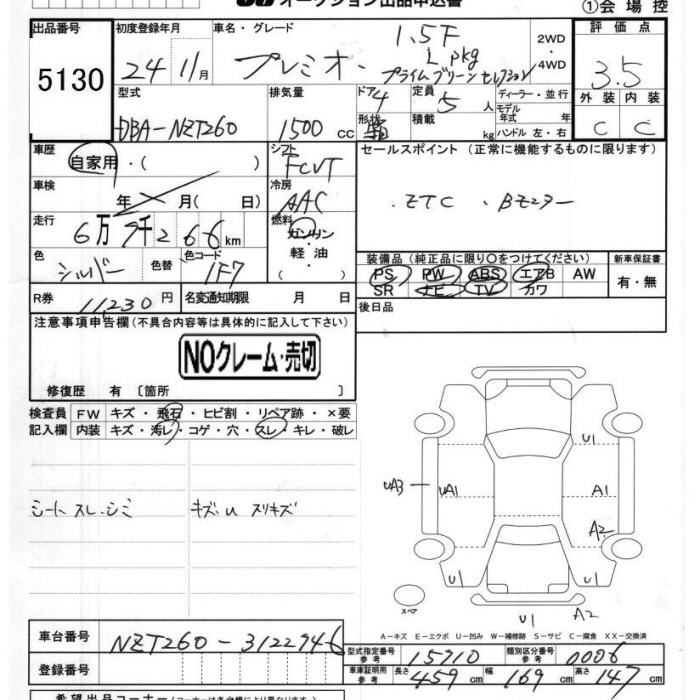 オークション出品申込書
①会場控
出品番号 初度登録年月 車名・グレード 1.5F 2WD 評価点
5130 24 11月 プレミオ L pkg 4WD 3.5
プライムグリーンセレクション
型式 排気量 ドア 4 定員 5人 ディーラー・並行 外装 内装
DBA-NZT260 1500cc 形状 積載 kg モデル年式 年 C C
ハンドル 左・右
車歴 自家用・( ) シフト FCVT セールスポイント (正常に機能するものに限ります)
車検 年 月( 日) 冷房 AAC ・ETC ・Bモニター
走行 6万9千266km 燃料 ガソリン
軽油・( )
色 シルバー 色替 色コード 1F7 装備品(純正品に限り○をつけてください) 新車保証書
PS PW ABS エアB AW 有・無
SR ナビ TV カワ
R券 11,230円 名変通知期限 月 日 後日品
注意事項申告欄(不具合内容等は具体的に記入して下さい)
NOクレーム・売切
修復歴 有 〔箇所 〕
検査員 FW キズ・飛石・ヒビ割・リペア跡・×要
記入欄 内装 キズ・汚レ・コゲ・穴・スレ・キレ・破レ
シート スレ・シミ キズ・U スリキズ
U1
UA3 UA1 A1
A2
U1 U1
スペア
U1 A2
A-キズ E-エクボ U-凹み W-補修跡 S-サビ C-腐食 XX-交換済
車台番号 NZT260-3122946 型式指定番号 参考 15910 類別区分番号 参考 0006
登録番号 車庫証明用 参考 長さ 459cm 幅 169cm 高さ 147cm
希望出品コーナー(コーナーは各会場により異なります)